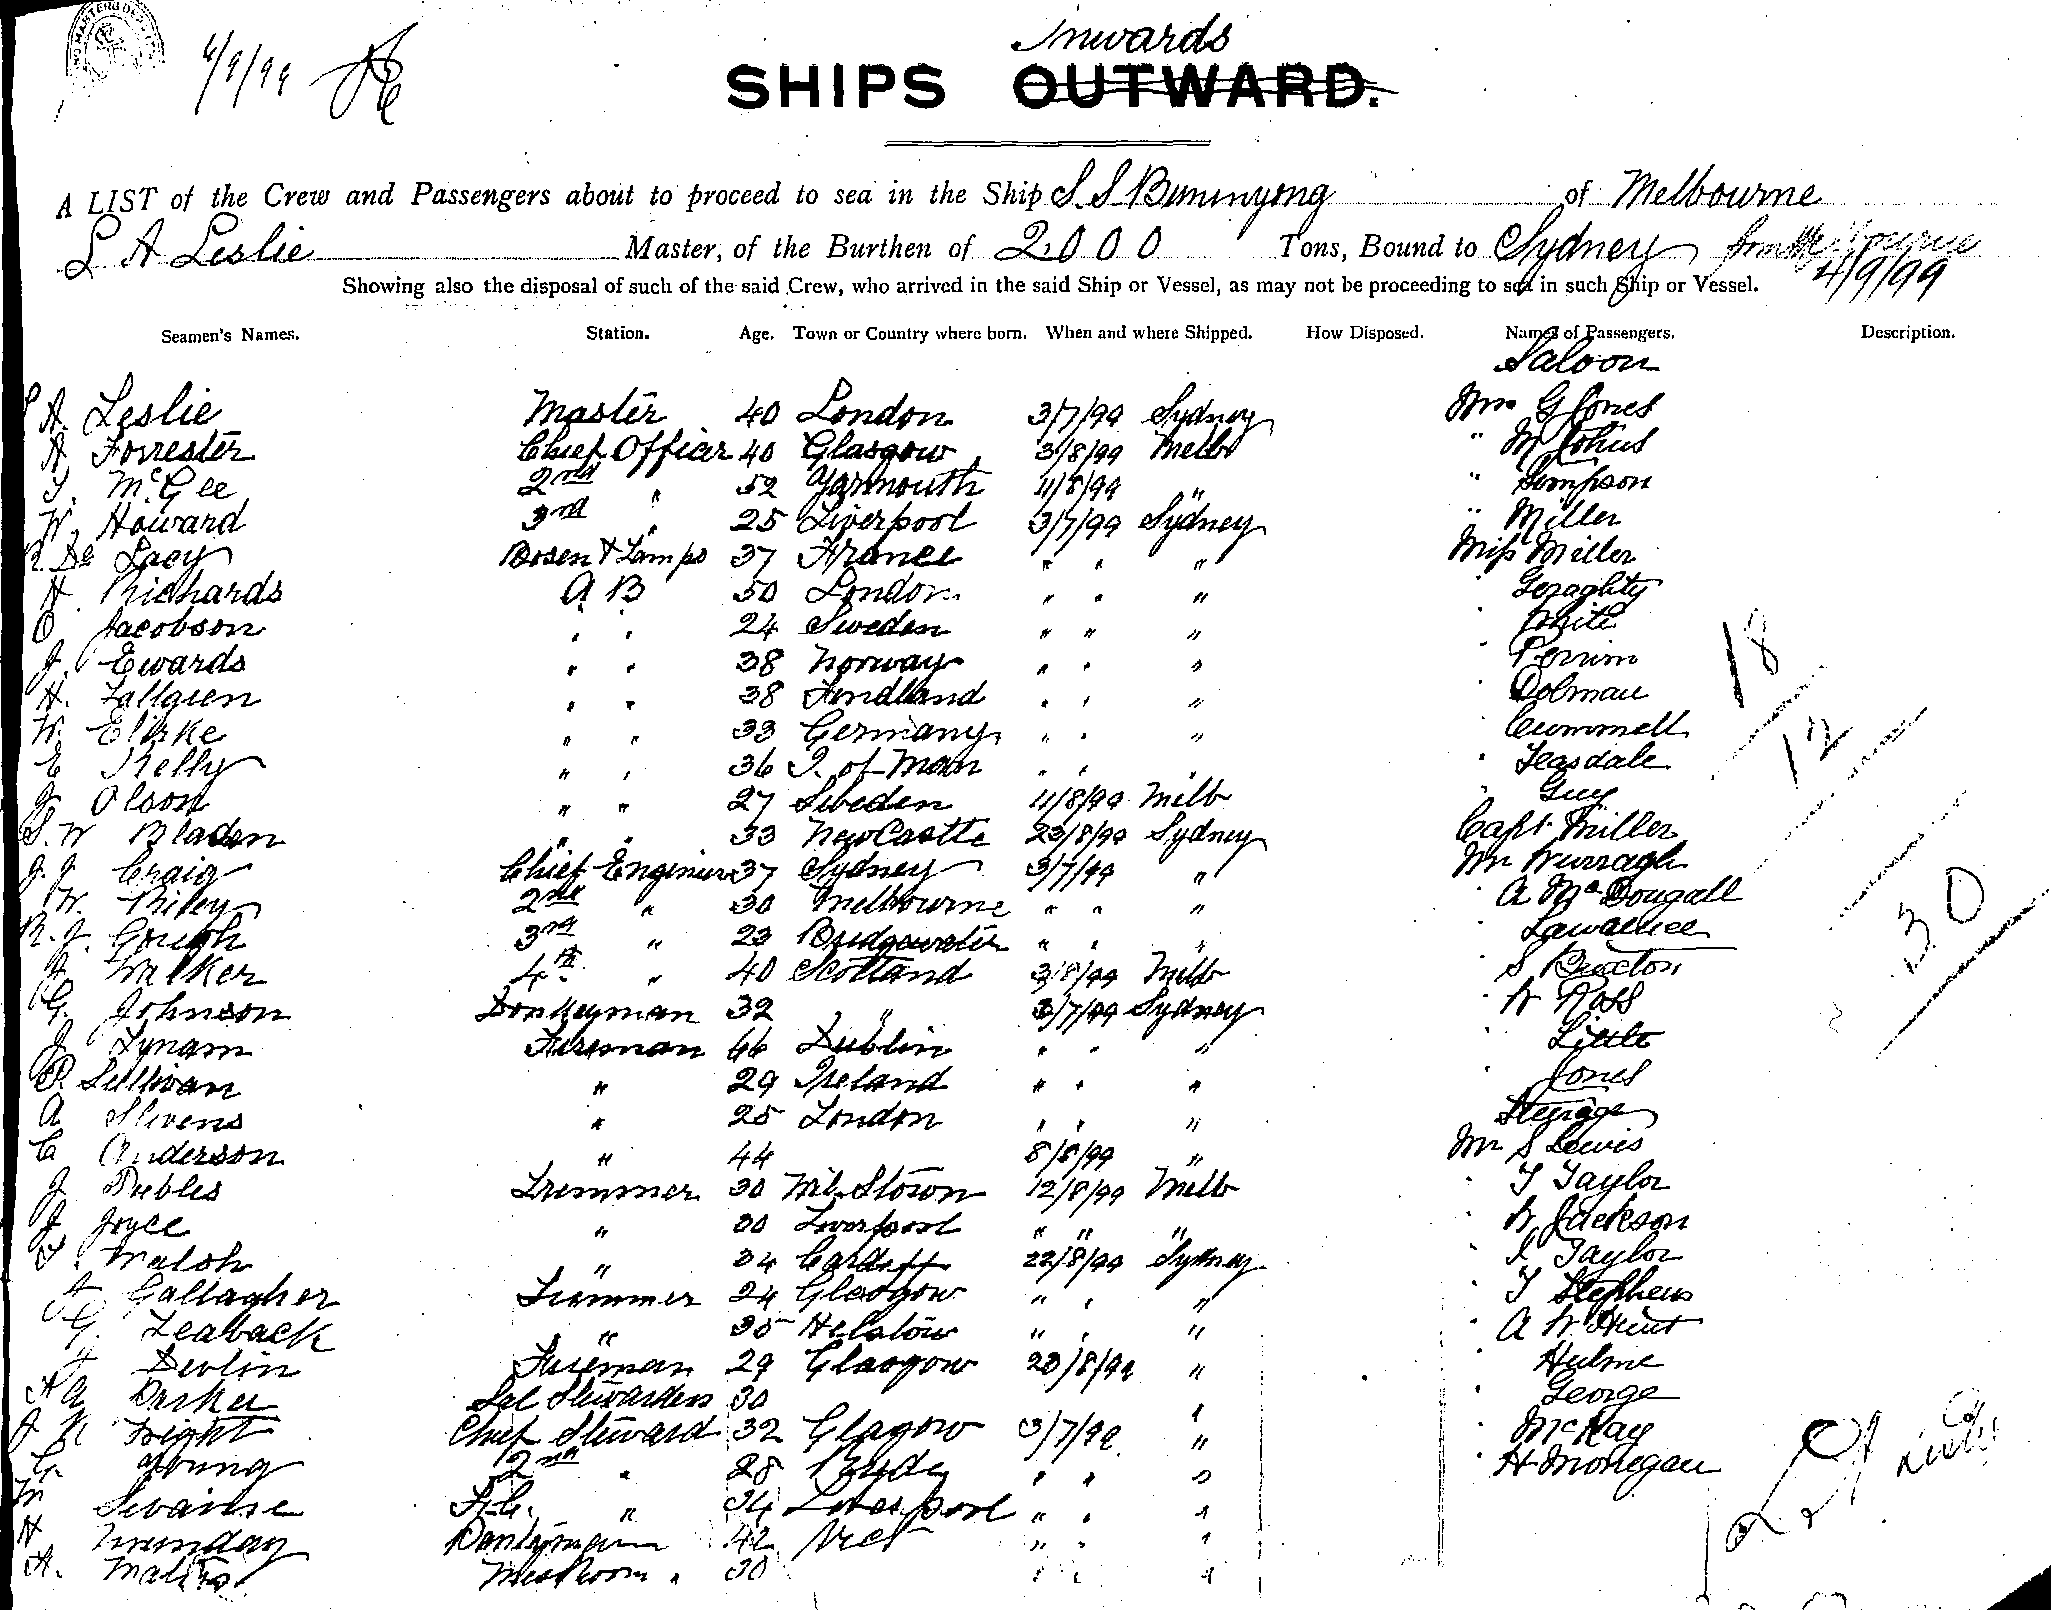 6/9/99
Inwards
SHIPS OUTWARD.
A LIST of the Crew and Passengers about to proceed to sea in the Ship S. S Buninyong of Melbourne
L A Leslie Master, of the Burthen of 2000 Tons, Bound to Sydney from Melbourne
4/9/99
Showing also the disposal of such of the said Crew, who arrived in the said Ship or Vessel, as may not be proceeding to sea in such Ship or Vessel.
Seamen's Names. Station. Age. Town or Country where born. When and where Shipped. How Disposed. Names of Passengers. Description.
Saloon
A. Leslie Master 40 London 3/7/99 Sydney Mrs G Jones
A Forrester Chief Officer 40 Glasgow 3/8/99 Melb " M Johns
McGee 2nd " 52 Yarmouth 11/8/99 " " Simpson
W. Howard 3rd " 25 Liverpool 3/7/99 Sydney " Miller
R. De Lacy Bosen & Lamps 37 France " " " Miss Miller
H. Richards A. B 50 London " " " " Geraghty
O Jacobson " " 24 Sweden " " " " White
J. Ewards " " 38 Norway " " " " Perrim
H. Fallgren " " 38 Findland " " " " Dolman
W. Elirke " " 33 Germany " " " " Cummell
E Kelly " " 36 I. of Man " " " " Teasdale
J. Olson " " 27 Sweden 11/8/99 Melb " Guy
S. W Bladen " " 33 NewCastle 23/8/99 Sydney Capt Miller
J. J. Craig Chief Engineer 37 Sydney 3/7/99 " Mr Wurragh
W. Riley 2nd " 30 Melbourne " " " " A McDougall
R. J. Gough 3rd " 23 Bridgewater " " " " Lawrence
A. Walker 4th " 40 Scotland 3/8/99 Melb " S Buxton
G. Johnson Donkeyman 32 " 3/7/99 Sydney " W Ross
J Tynam Fireman 46 Dublin " " " " Little
P. Sullivan " 29 Ireland " " " " Jones
A Stivens " 25 London " " " Steerage
C Anderson " 44 8/8/99 " Mr S Lewis
J Peebles Trimmer 30 Mil. Stown 12/8/99 Melb " T Taylor
J. Joyce " 30 Liverpool " " " " W Jackson
T. Walsh " 34 Cardiff 22/8/99 Sydney " J Taylor
Gallagher Trimmer 24 Glasgow " " " " T Stephens
G. Zeaback " 35 Helstow " " " " A W Hunt
J Devlin Fireman 29 Glasgow 23/8/99 " " Hulme
A Parker Sal Stewardess 30 " " George
J K Fright Chief Steward 32 Glagow 3/7/99 " " McKay
C. Young 2nd " 28 Ryde " " " " H Monegan
M Swainse F.C. " 34 Liverpool " " "
H Munday Pantryman 42 Vict " " "
A. Mates Messroom " 30 " " "
18
12
30